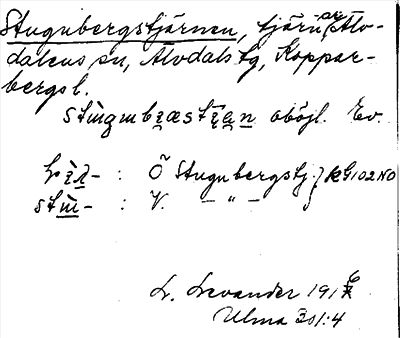 Stugubergstjärnen, tjärnar Älv-
dalens sn, Älvdals tg, Koppar-
bergs l.
oböjl. Ev.
: Ö Stugubergstj. } kG102NO
: V. — " —
L. Levander 191
Ulma 301:4